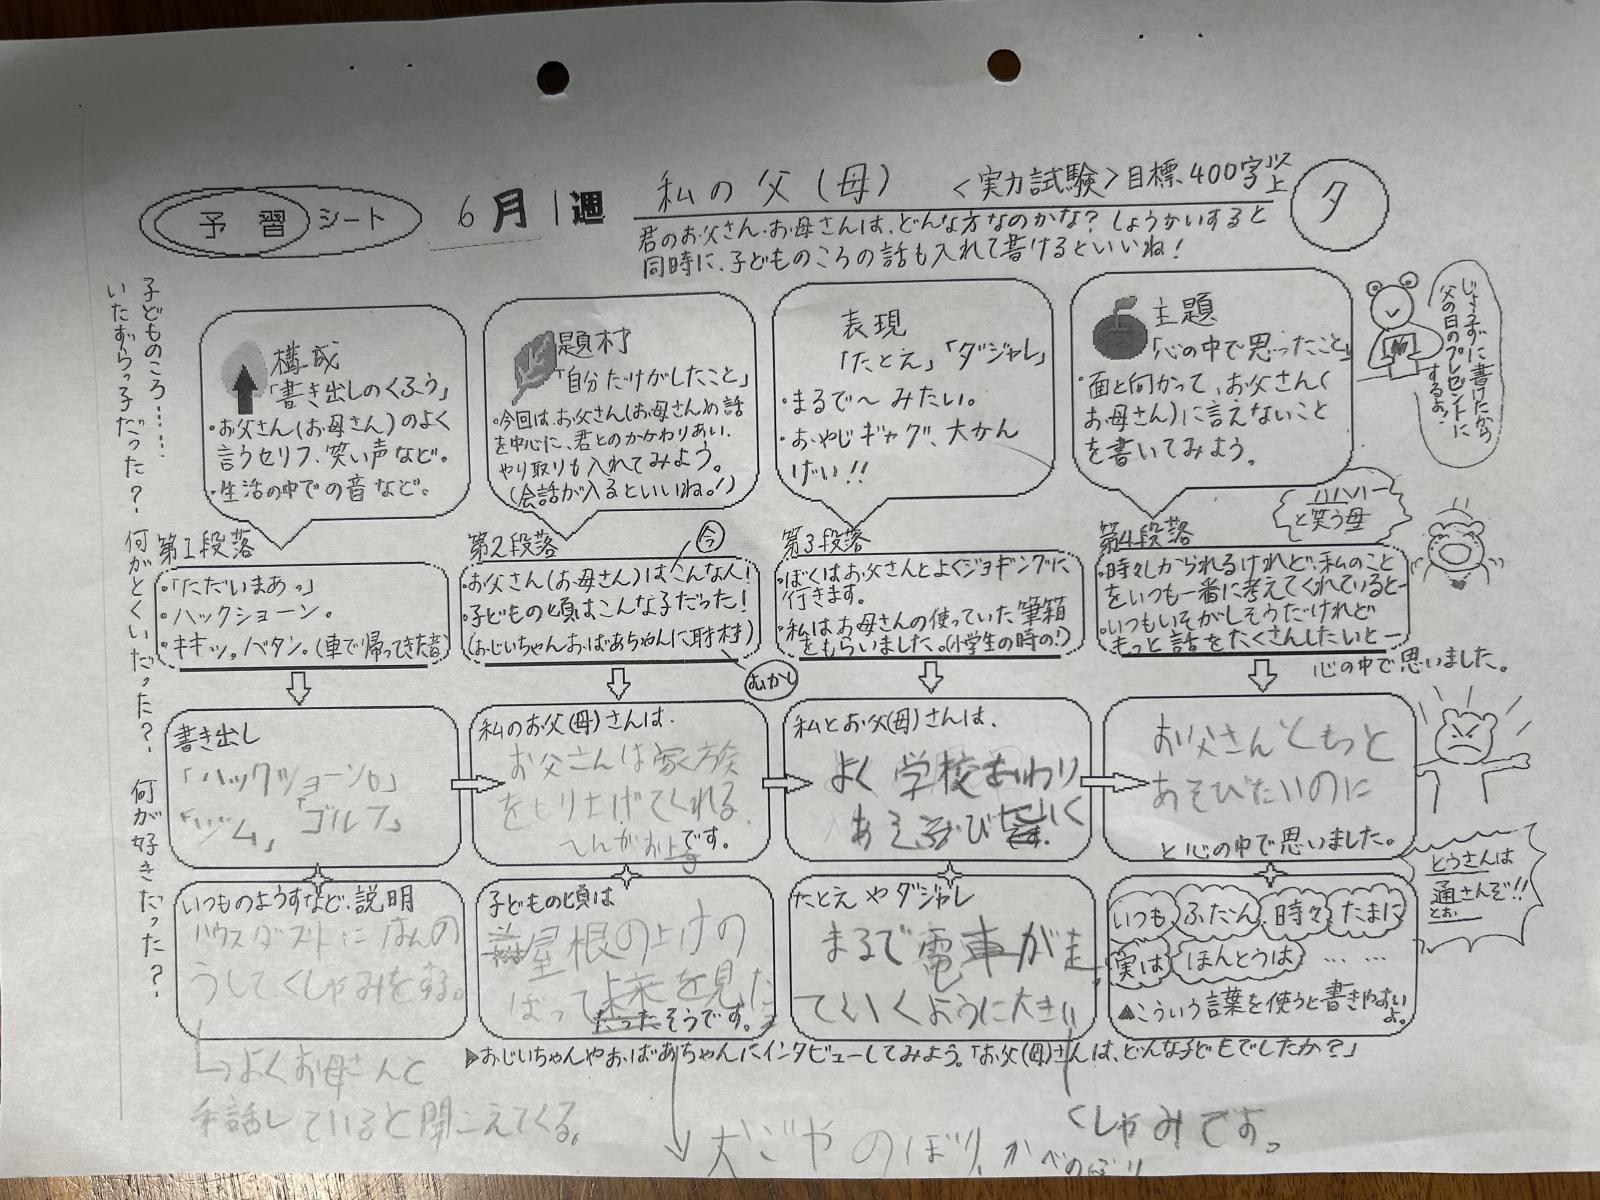 予習シート
6月1週
私の父(母)
<実力試験>目標400字以上
タ
君のお父さん・お母さんは、どんな方なのかな?しょうかいすると
同時に、子どものころの話も入れて書けるといいね!
子どものころ……
いたずらっ子だった?何がとくいだった?何が好きだった?
構成
「書き出しのくふう」
・お父さん(お母さん)のよく
言うセリフ、笑い声など。
・生活の中での音など。
題材
「自分だけがしたこと」
・今回は、お父さん(お母さん)の話
を中心に、君とのかかわりあい、
やり取りも入れてみよう。
(会話が入るといいね!)
表現
「たとえ」「ダジャレ」
・まるで〜みたい。
・おやじギャグ、大かん
げい!!
主題
「心の中で思ったこと」
・面と向かって、お父さん(
お母さん)に言えないこと
を書いてみよう。
じょうずに書けたから
父の日のプレゼントに
するよ!
ハハハー
と笑う母
第1段落
・「ただいまあ。」
・ハックショーン。
・キキッ。バタン。(車で帰ってきた音)
第2段落
今
・お父さん(お母さん)はこんな人!
・子どもの頃はこんな子だった!
(おじいちゃんおばあちゃんに取材)
むかし
第3段落
・ぼくはお父さんとよくジョギングに
行きます。
・私はお母さんの使っていた筆箱
をもらいました。(小学生の時の!)
第4段落
・時々しかられるけれど、私のこと
をいつも一番に考えてくれていると―
・いつもいそがしそうだけれど
もっと話をたくさんしたいと―
心の中で思いました。
書き出し
「ハックショーン。」
「ジム」「ゴルフ」
私のお父(母)さんは、
お父さんは家族
をもり上げてくれる
です。
私とお父(母)さんは、
よく学校おわり
あそびにいく
お父さんともっと
あそびたいのに
と心の中で思いました。
いつものようすなど、説明
ハウスダストにはんの
うしてくしゃみをする。
よくお母さんと
電話していると聞こえてくる。
子どもの頃は
屋根の上
を見た
そうです。
たとえやダジャレ
まるで電車が走
ていくように大きい
くしゃみです。
いつも ふだん 時々 たまに
実は ほんとうは … …
▲こういう言葉を使うと書きやすいよ。
とうさんは
通さんぞ!!
とお
▶おじいちゃんやおばあちゃんにインタビューしてみよう。「お父(母)さんは、どんな子どもでしたか?」
のぼり、かべのぼり